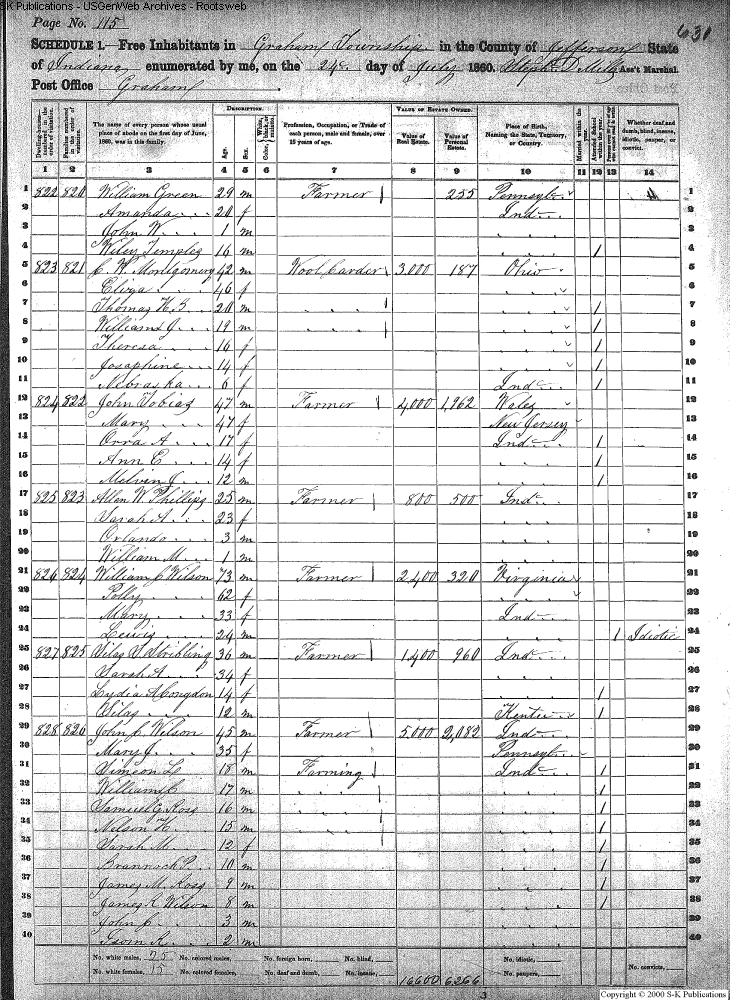 S-K Publications - USGenWeb Archives - Rootsweb
Page No. 115
631
SCHEDULE 1.—Free Inhabitants in Graham Township in the County of Jefferson State
of Indiana enumerated by me, on the 24 day of July 1860. D Mills Ass't Marshal.
Post Office Graham
DESCRIPTION. VALUE OF ESTATE OWNED.
Dwelling-houses—numbered in the order of visitation. Families numbered in the order of visitation. The name of every person whose usual place of abode on the first day of June, 1860, was in this family. Age. Sex. Color, White, black, or mulatto. Profession, Occupation, or Trade of each person, male and female, over 15 years of age. Value of Real Estate. Value of Personal Estate. Place of Birth, Naming the State, Territory, or Country. Married within the year. Attended School within the year. Whether deaf and dumb, blind, insane, idiotic, pauper, or convict.
1 2 3 4 5 6 7 8 9 10 11 12 13 14
1 822 820 William Green 29 m Farmer 255 Pennsyl 1
2 Amanda 20 f Ind 2
3 John W 1 m 3
4 Wiley Temples 16 m / 4
5 823 821 C. W. Montgomery 42 m Wool Carder 3,000 187 Ohio 5
6 Eliza 46 f 6
7 Thomas H. S. 20 m / 7
8 William J. 19 m / 8
9 Theresa 16 f / 9
10 Josephine 14 f / 10
11 Nebraska 6 f Ind / 11
12 824 822 John Tobias 47 m Farmer 4,000 1,962 Wales 12
13 Mary 47 f New Jersey 13
14 Orra A 17 f Ind / 14
15 Ann E 14 f / 15
16 Melvin J. 12 m / 16
17 825 823 Allen W Phillips 25 m Farmer 800 500 Ind 17
18 Sarah A 23 f 18
19 Orlando 3 m 19
20 William M 1 m 20
21 826 824 William C Wilson 73 m Farmer 2,400 320 Virginia 21
22 Polly 62 f 22
23 Mary 33 f Ind 23
24 Lewis 24 m 1 Idiotic 24
25 827 825 Silas S Stribling 36 m Farmer 1,400 960 Ind 25
26 Sarah A 34 f 26
27 Lydia A Congdon 14 f / 27
28 Silas 12 m Kentu / 28
29 828 826 John C Wilson 45 m Farmer 5,000 2,082 Ind 29
30 Mary J. 35 f Pennsyl 30
31 Simeon L 18 m Farming Ind / 31
32 William C 17 m / 32
33 Samuel G. Ross 16 m / 33
34 Nelson H. 15 m / 34
35 Sarah M. 12 f / 35
36 Brannock P. 10 m / 36
37 James M. Ross 9 m / 37
38 James K Wilson 8 m / 38
39 John C. 3 m 39
40 Isom R. 2 m 40
No. white males, 25 No. colored males, No. foreign born, No. blind, No. idiotic, No. convicts,
No. white females, 15 No. colored females, No. deaf and dumb, No. insane, 16600 6266 No. paupers,
3
Copyright © 2000 S-K Publications